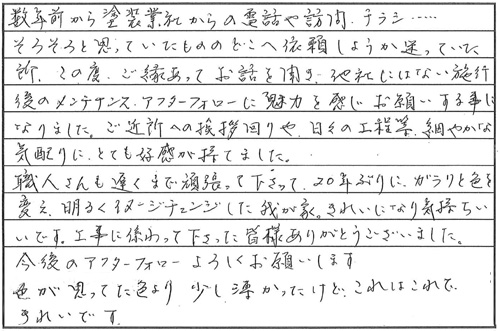 数年前から塗装業社からの電話や訪問、チラシ……
そろそろと思っていたもののどこへ依頼しようか迷っていた
所、この度、ご縁あってお話を聞き、他社にはない施行
後のメンテナンス、アフターフォローに魅力を感じお願いする事に
なりました。ご近所への挨拶回りや、日々の工程等、細やかな
気配りに、とても好感が持てました。
職人さんも遅くまで頑張って下さって、20年ぶりに、ガラリと色を
変え、明るくイメージチェンジした我が家。きれいになり気持ちい
いです。工事に係わって下さった皆様ありがとうございました。
今後のアフターフォローよろしくお願いします
色が思ってた色より少し濃かったけど、これはこれで、
きれいです。